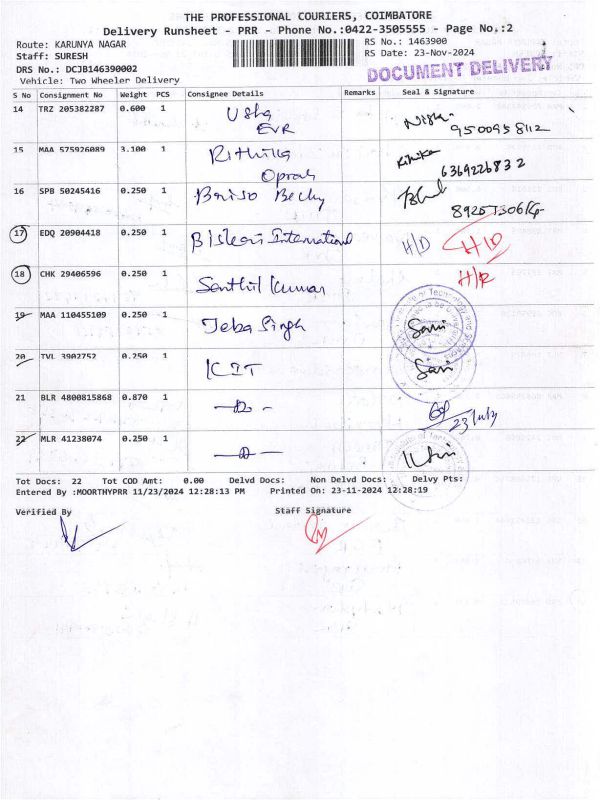 THE PROFESSIONAL COURIERS, COIMBATORE
Delivery Runsheet - PRR - Phone No.:0422-3505555 - Page No.:2
Route: KARUNYA NAGAR
Staff: SURESH
DRS No.: DCJB146390002
Vehicle: Two Wheeler Delivery
RS No.: 1463900
RS Date: 23-Nov-2024
DOCUMENT DELIVERY
S No Consignment No Weight PCS Consignee Details Remarks Seal & Signature
14 TRZ 205382287 0.600 1 Usha
EVR
9500958112
15 MAA 575926089 3.100 1 Rithika
6369226832
16 SPB 50245416 0.250 1 Becky
17 EDQ 20904418 0.250 1 International H/D H/D
18 CHK 29406596 0.250 1 Senthil Kumar H/R
19 MAA 110455109 0.250 1 Jeba Singh Sani
20 TVL 3902752 0.250 1 KIT Sani
21 BLR 4800815868 0.870 1 -D- 23/11/24
22 MLR 41238074 0.250 1 -D-
Tot Docs: 22 Tot COD Amt: 0.00 Delvd Docs: Non Delvd Docs: Delvy Pts:
Entered By :MOORTHYPRR 11/23/2024 12:28:13 PM Printed On: 23-11-2024 12:28:19
Verified By Staff Signature